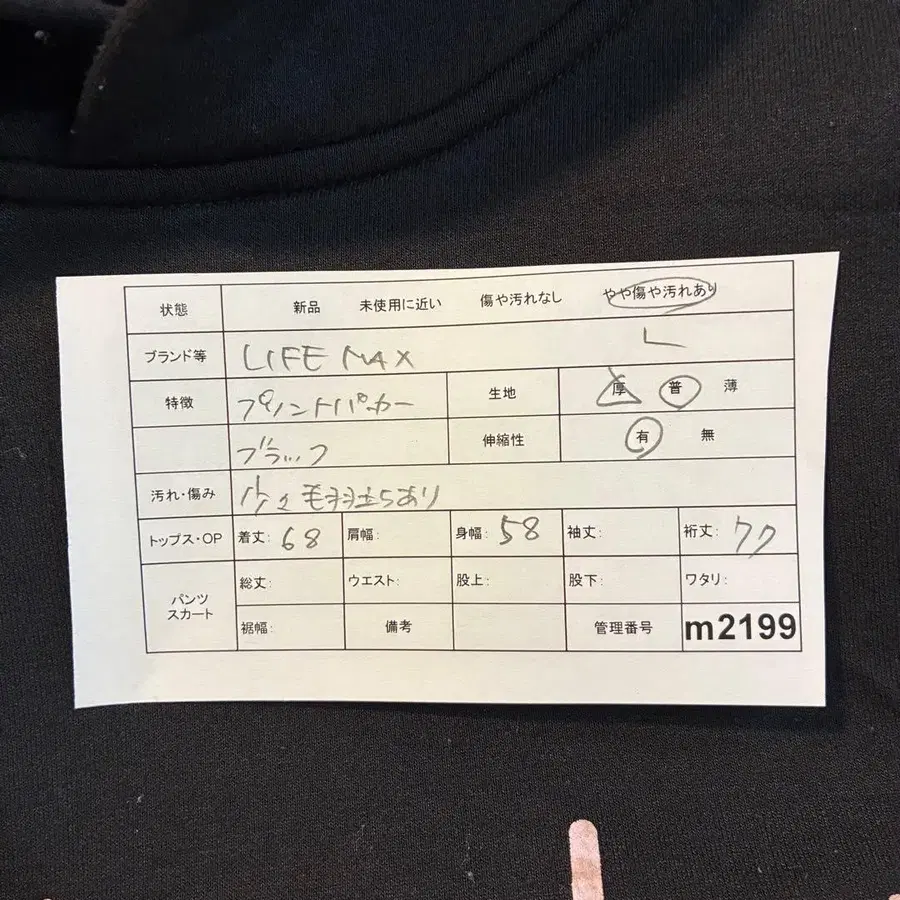 状態 新品 未使用に近い 傷や汚れなし やや傷や汚れあり
ブランド等 LIFE MAX L
特徴 プリントパーカー 生地 厚 普 薄
ブラック 伸縮性 有 無
汚れ・傷み 少々毛羽立ちあり
トップス・OP 着丈: 68 肩幅: 身幅: 58 袖丈: 裄丈: 77
パンツ スカート 総丈: ウエスト: 股上: 股下: ワタリ:
裾幅: 備考 管理番号 m2199